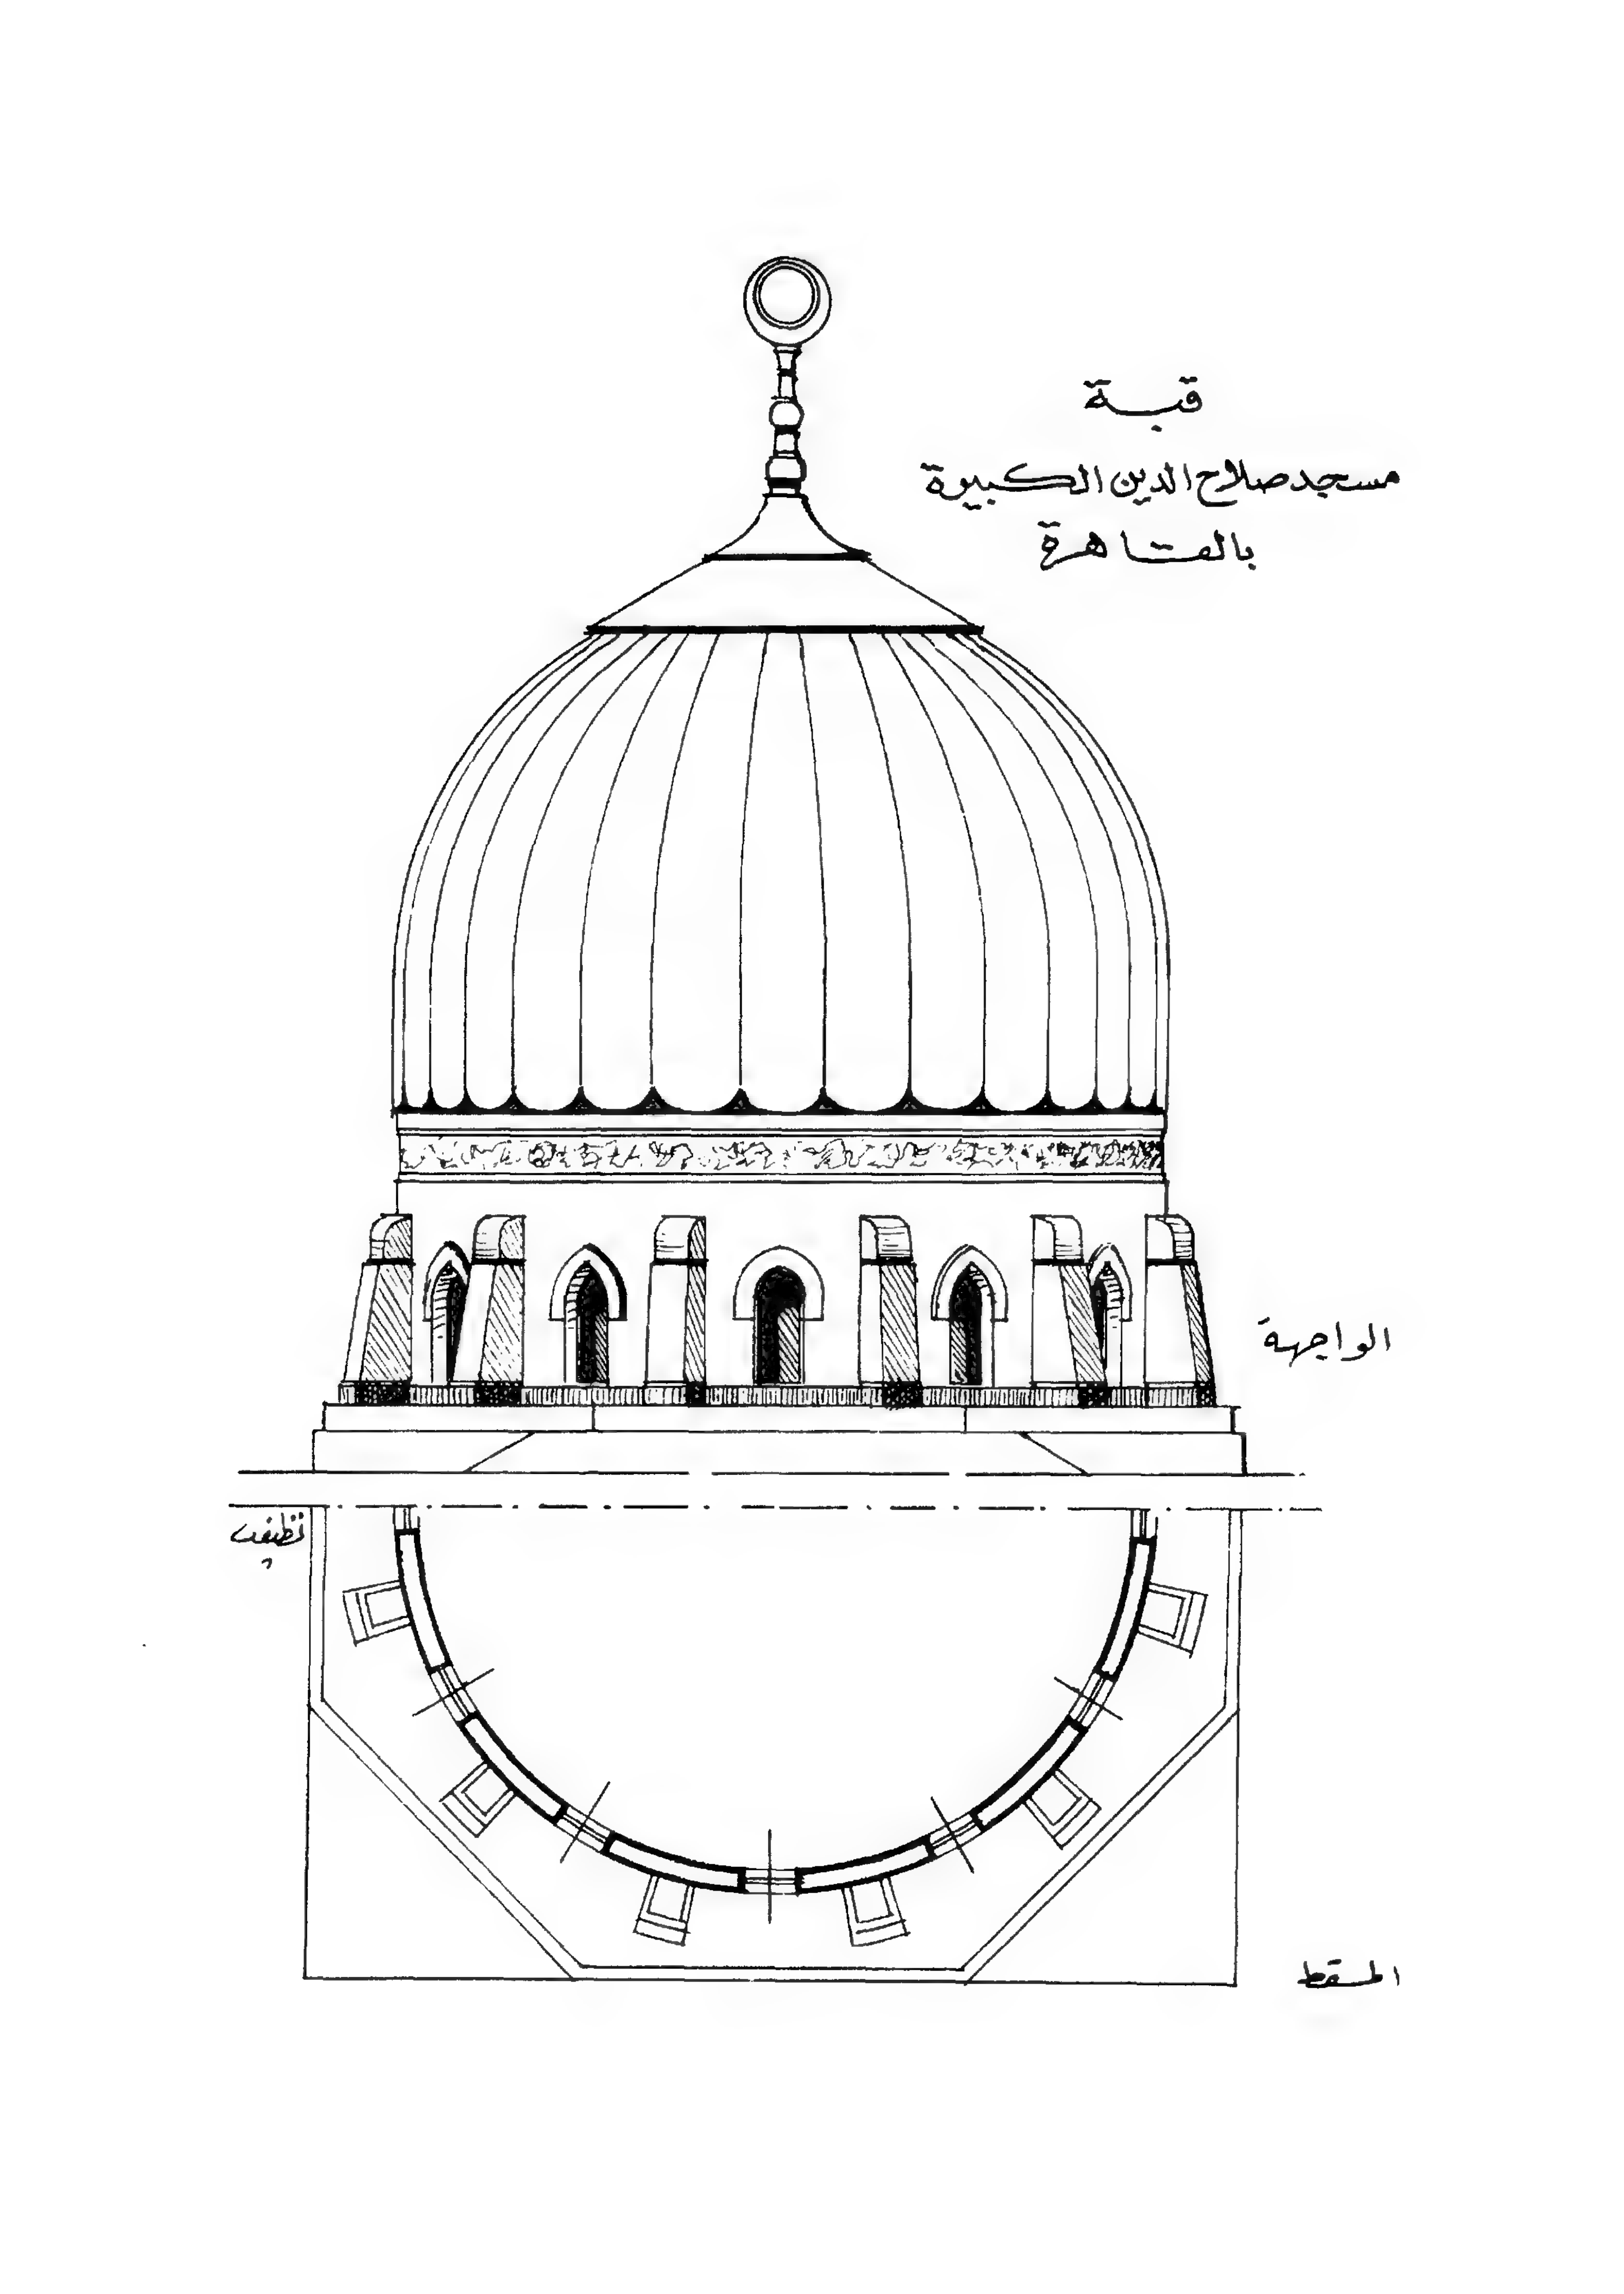 قبة
مسجد صلاح الدين الكبيرة
بالقاهرة
الواجهة
نظيف
المسقط